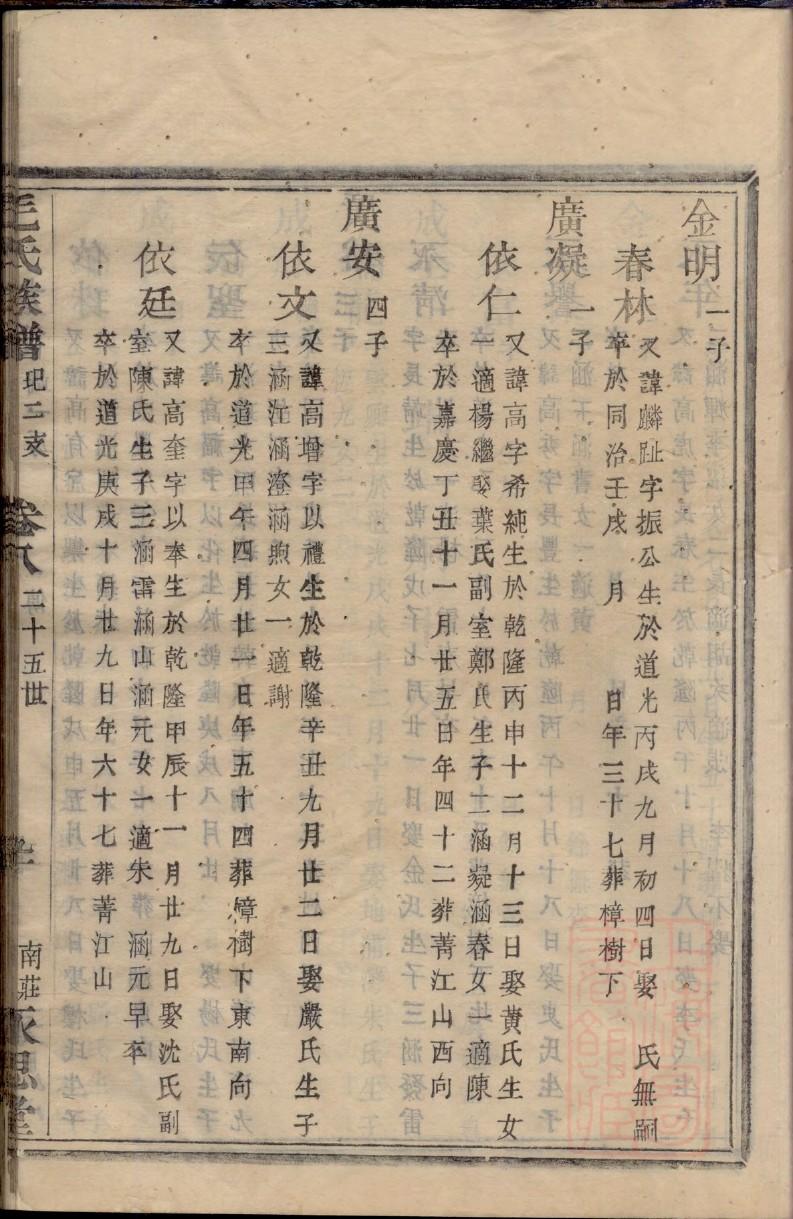 金明一子
春林又諱麟趾字振公生於道光丙戌九月初四日娶　氏無嗣
卒於同治壬戌　月　日年三十七葬樟樹下
廣凝一子
依仁又諱高字希純生於乾隆丙申十二月十三日娶黄氏生女
一適楊繼娶葉氏副室鄭氏生子二涵凝涵春女一適陳
卒於嘉慶丁丑十一月廿五日年四十二葬菁江山西向
廣安四子
依文又諱高增字以禮生於乾隆辛丑九月廿二日娶嚴氏生子
三涵江涵澄涵煦女一適謝
卒於道光甲午四月廿一日年五十四葬樟樹下東南向
依廷又諱高奎字以奉生於乾隆甲辰十一月廿九日娶沈氏副
室陳氏生子三涵雷涵山涵元女一適朱　涵元早卒
卒於道光庚戌十月廿九日年六十七葬菁江山
毛氏族譜 圯二支 卷八 二十五世 南莊永思堂